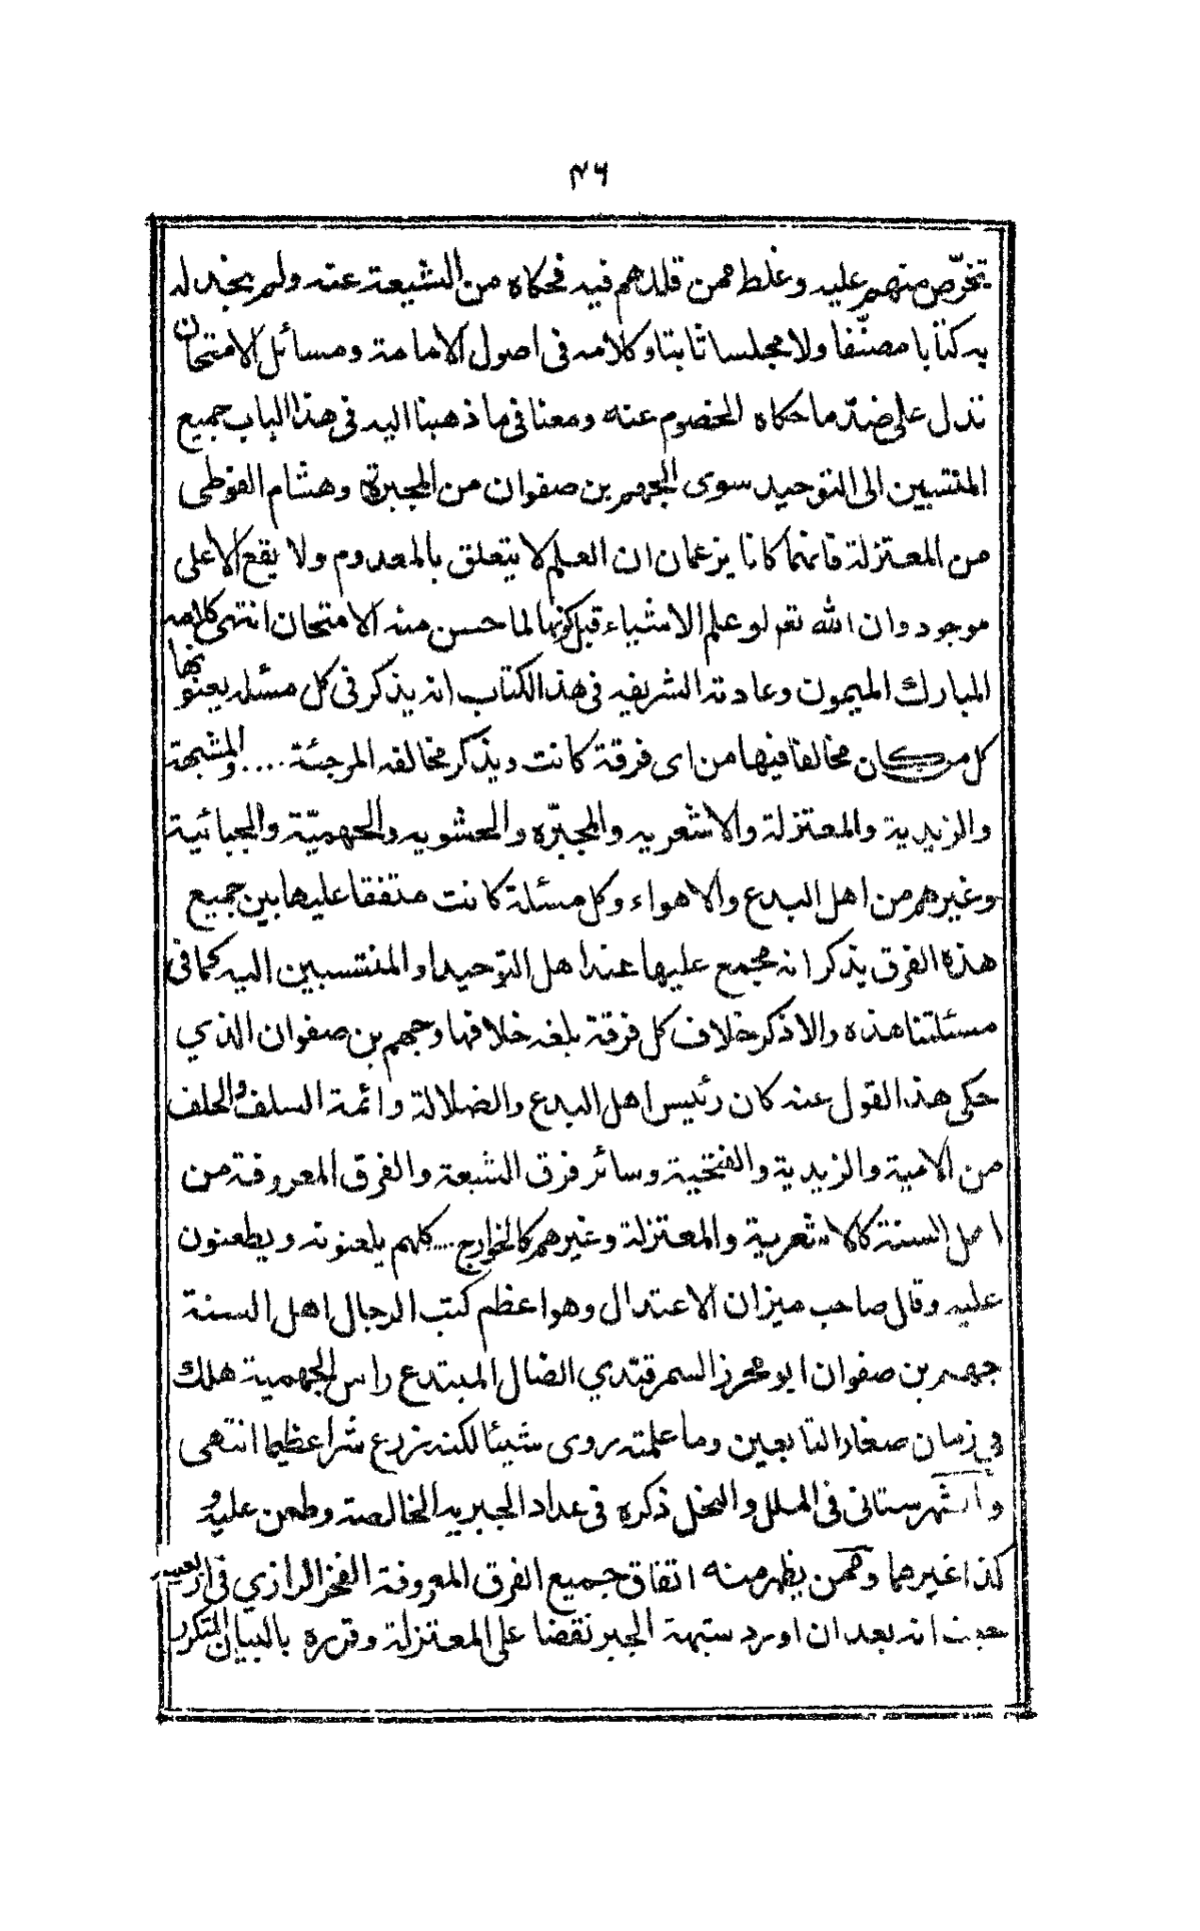 ٤٦
تخرّص منهم عليه وغلط ممن قلدهم فيه فحكاه من الشيعة عنه ولم يجد له
به كتابا مصنّفا ولا مجلسا ثابتا وكلامه فى اصول الامامة ومسائل الامتحان
تدل على ضدّ ما حكاه الخصوم عنه ومعنا فى ما ذهبنا اليه فى هذا الباب جميع
المنتسبين الى التوحيد سوى الجهم بن صفوان من المجبرة وهشام الفوطى
من المعتزلة فانهما كانا يزعمان ان العلم لا يتعلق بالمعدوم ولا يقع الا على
موجود وان الله تعم لو علم الاشياء قبل كونها لما حسن منه الامتحان انتهى كلامه
المبارك الميمون وعادته الشريفه فى هذا الكتاب انه يذكر فى كل مسئله يعنونها
كل من كان مخالفا فيها من اى فرقة كانت ويذكر مخالفه المرجئة .... والمشبهة
والزيدية والمعتزلة والاشعريه والمجبّره والحشويه والجهميّة والجبائية
وغيرهم من اهل البدع والاهواء وكل مسئلة كانت متفقا عليها بين جميع
هذه الفرق يذكر انه مجمع عليها عند اهل التوحيد او المنتسبين اليه كما فى
مسئلتنا هذه والا ذكر خلاف كل فرقة بلغه خلافها وجهم بن صفوان الذي
حكى هذا القول عنه كان رئيس اهل البدع والضلالة وائمة السلف والخلف
من الامية والزيدية والفتحية وسائر فرق الشيعة والفرق المعروفة من
اهل السنة كالاشعرية والمعتزلة وغيرهم كالخوارج ... كلهم يلعنونه ويطعنون
عليه وقال صاحب ميزان الاعتدال وهو اعظم كتب الرجال اهل السنة
جهم بن صفوان ابو محرز السمرقندي الضال المبتدع راس الجهمية هلك
في زمان صغار التابعين وما علمته روى شيئا لكنه زرع شرا عظيما انتهى
والشهرستانى فى الملل والنحل ذكره فى عداد الجبريه الخالصة وطعن عليه و
كذا غيرهما وممن يظهر منه اتفاق جميع الفرق المعروفة الفخر الرازي فى اربعينه
حيث انه بعد ان اورد شبهة الجبر نقضا على المعتزلة وقرره بالبيان المتكرر